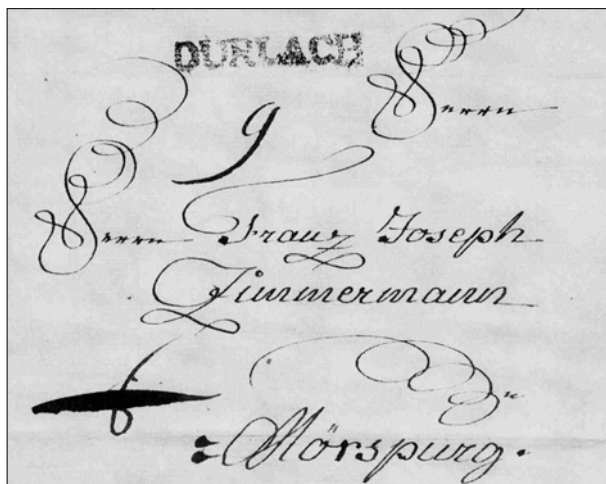 DURLACH
Herrn
9
Herrn Franz Joseph
Zimmermann
Mörspurg.